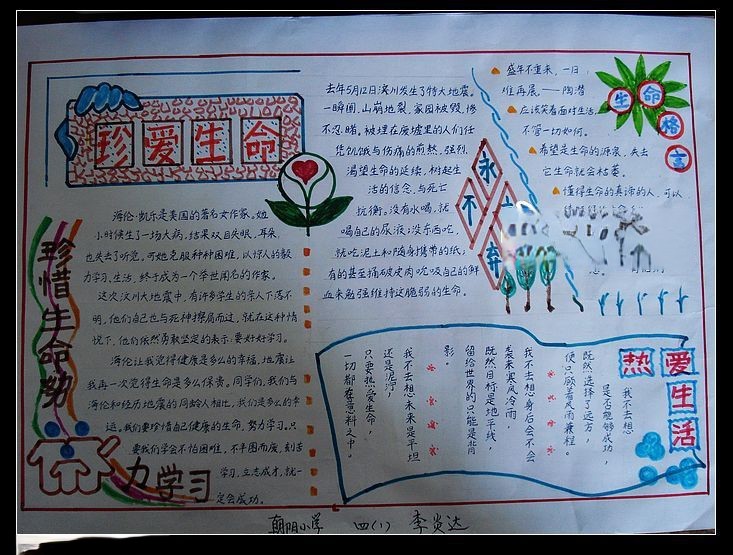 珍爱生命
海伦·凯尔是美国的著名女作家。她
小时候生了一场大病,结果双目失眼、耳朵
也失去了听觉。可她克服种种困难,以惊人的毅
力学习、生活,终于成为一个举世闻名的作家。
这次汶川大地震中,有许多学生的亲人下落不
明,他们自己也与死神擦肩而过,就在这种情
况下,他们依然勇敢坚定的表示:要好好学习。
海伦让我觉得健康是多么的幸福,地震让
我再一次觉得生命是多么保贵。同学们,我们与
海伦和经历地震的同龄人相比,我们是多么的幸
运。我们要珍惜自己健康的生命,努力学习。只
要我们学会不怕困难,不半图而废,刻苦
学习,立志成才,就一
定会成功。
珍惜生命努
力学习
去年5月12日汶川发生了特大地震。
一瞬间,山崩地裂,家园被毁,惨
不忍睹。被埋在废墟里的人们任
凭饥饿与伤痛的煎熬,强烈
渴望生命的延续,树起生
活的信念,与死亡
抗衡。没有水喝,就
喝自己的尿液;没东西吃,
就吃泥土和随身携带的纸;
有的甚至搞破皮肉吮吸自己的鲜
血来勉强维持这脆弱的生命。
永不言弃
生命格言
盛年不重来,一日
难再晨。——陶潜
应该笑着面对生活,
不管一切如何。
希望是生命的源泉,失去
它生命就会枯萎。
懂得生命的真谛的人,可以
热爱生活
我不去想
是否能够成功,
既然选择了远方,
便只顾着风雨兼程。
我不去想身后会不会
袭来寒风冷雨
既然目标是地平线,
留给世界的只能是背
影。
我不去想未来是平坦
还是泥泞,
只要热爱生命,
一切都在意料之中。
朝阳小学 四(1) 李贵达